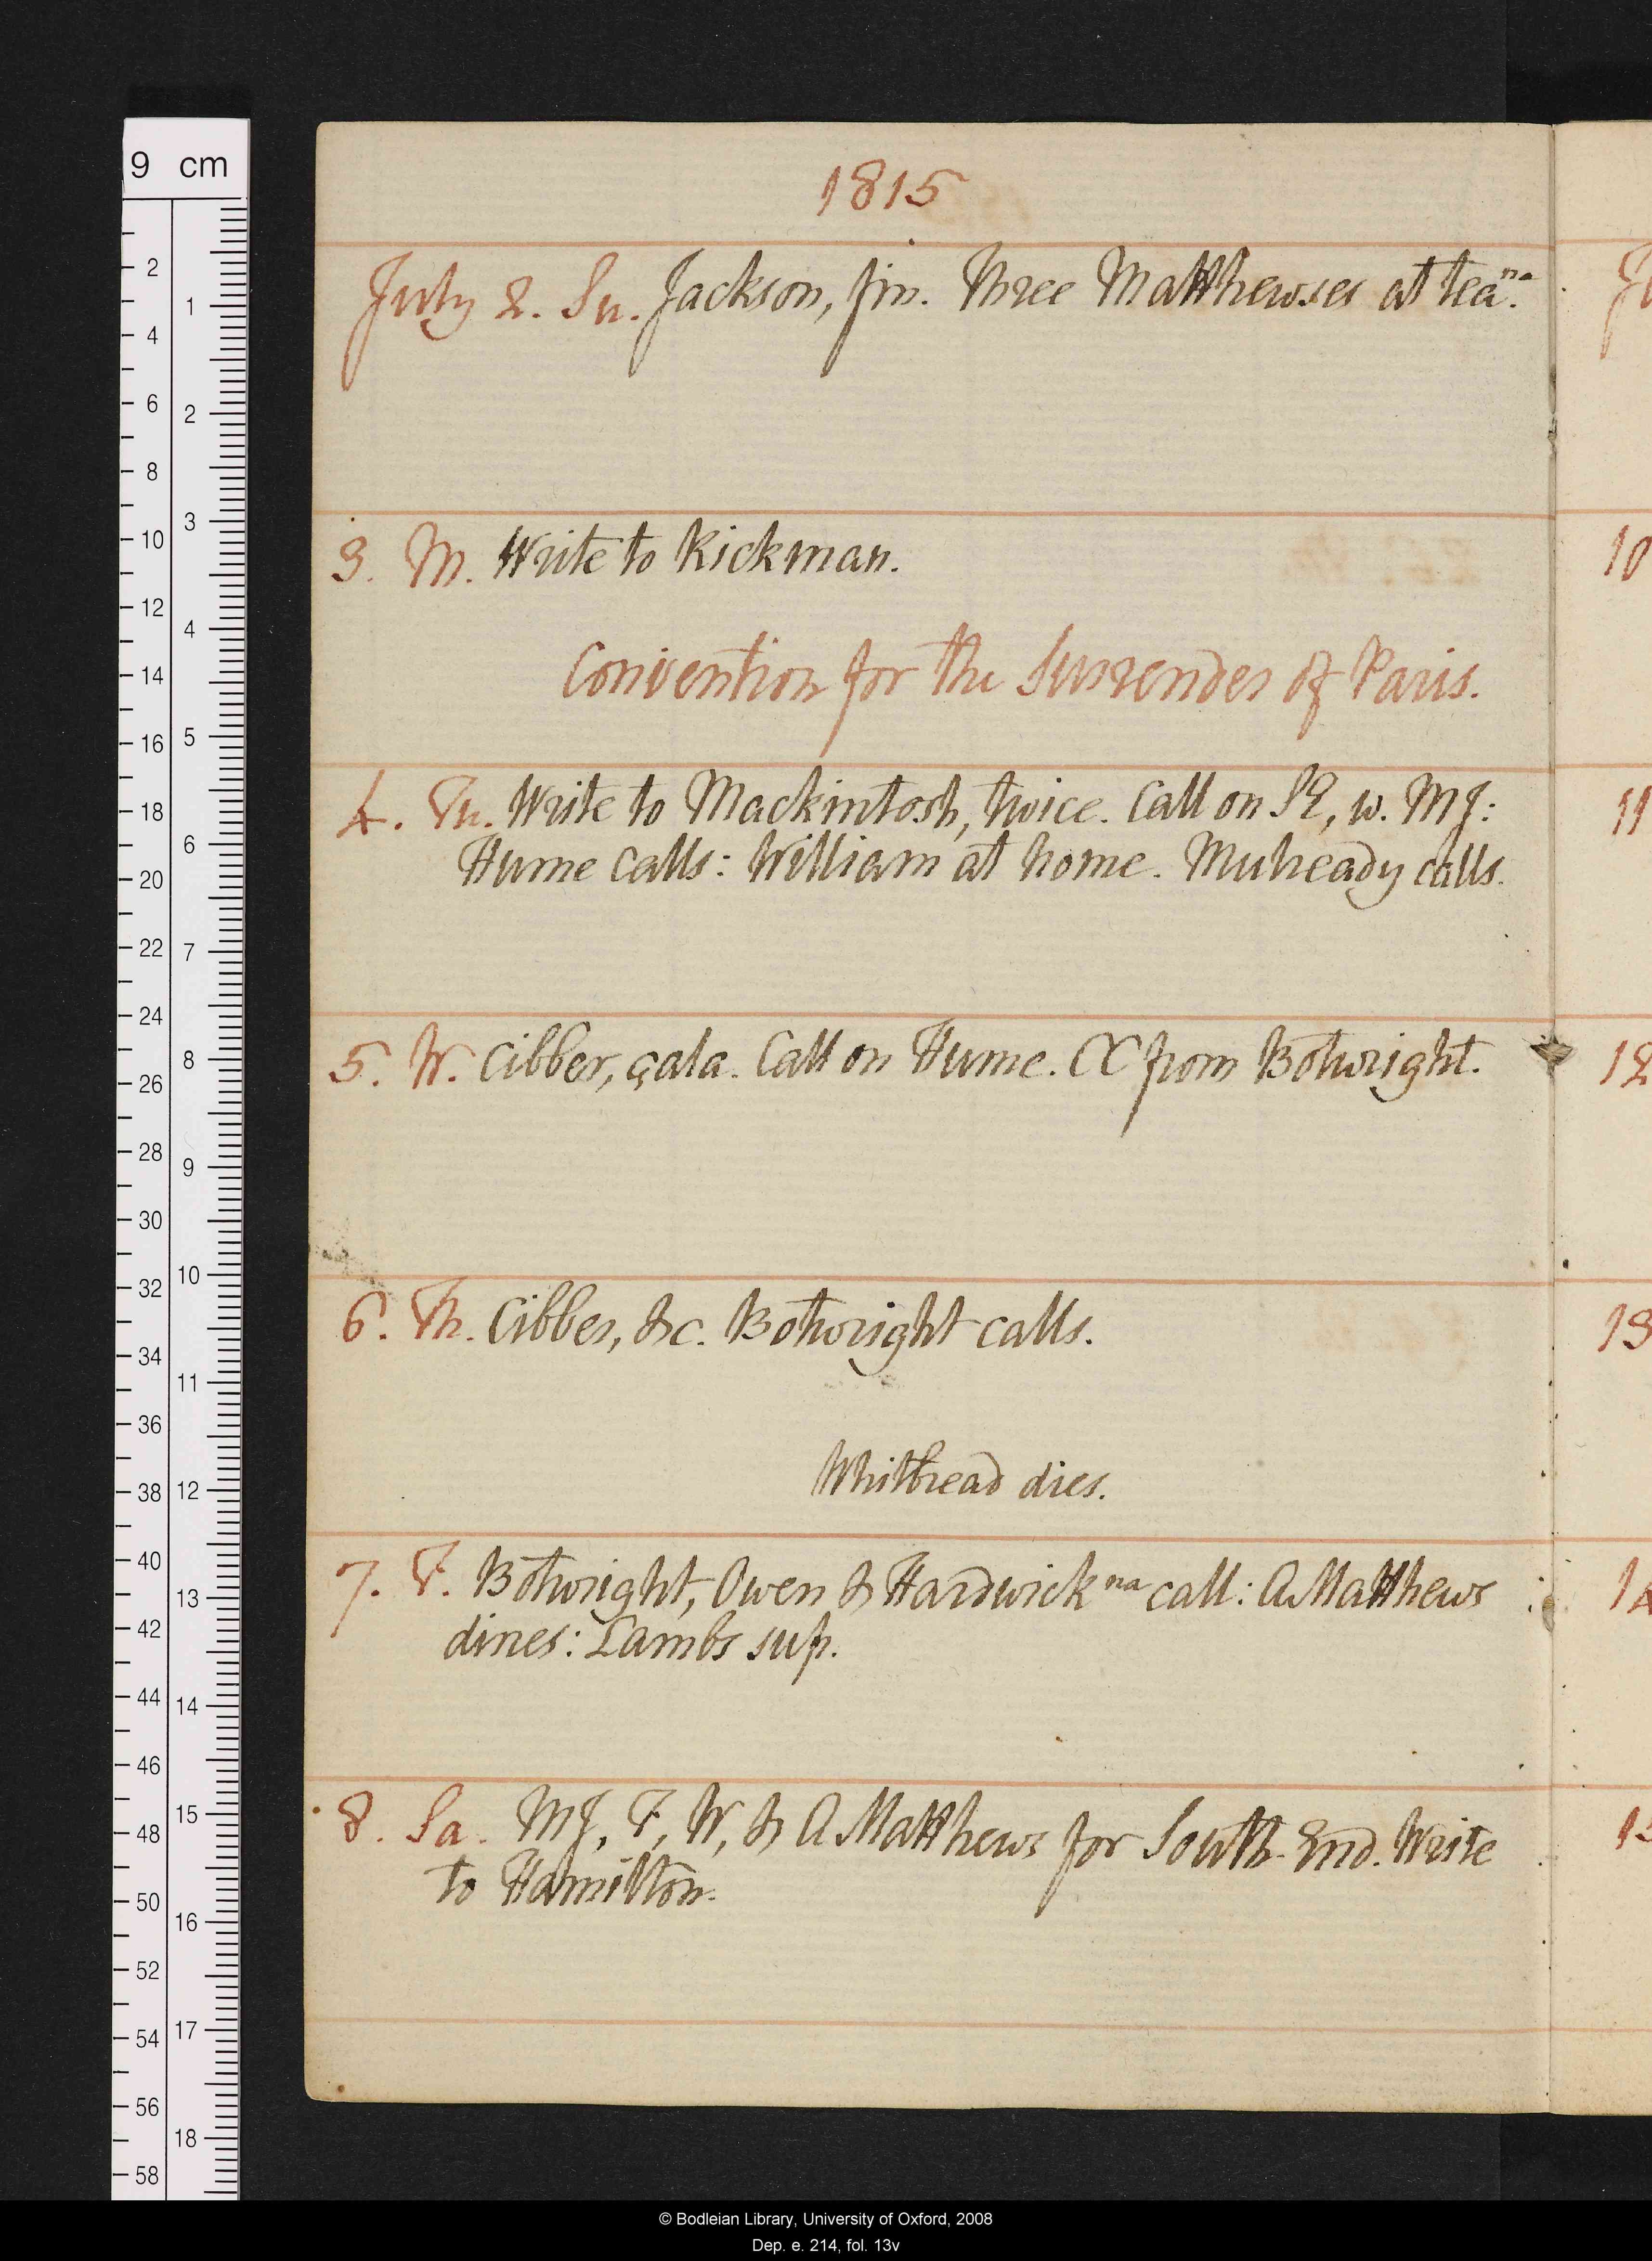 1815
July 2. Su. Jackson, fin. Three Matthewses at tea.na
3. M. Write to Rickman.
Convention for the Surrender of Paris.
4. Tu. Write to Mackintosh, twice. Call on SE, w. MJ:
Hume calls: William at home. Mulready calls.
5. W. Cibber, çala. Call on Hume. CC from Botwright.
6. Th. Cibber, &c. Botwright calls.
Whitbread dies.
7. F. Botwright, Owen & Hardwick na call: A Matthews
dines: Lambs sup.
8. Sa. MJ, F, W, & A Matthews for South-End. Write
to Hamilton.
9 cm
2
4
6
8
10
12
14
16
18
20
22
24
26
28
30
32
34
36
38
40
42
44
46
48
50
52
54
56
58
1
2
3
4
5
6
7
8
9
10
11
12
13
14
15
16
17
18
10
11
12
13
© Bodleian Library, University of Oxford, 2008
Dep. e. 214, fol. 13v